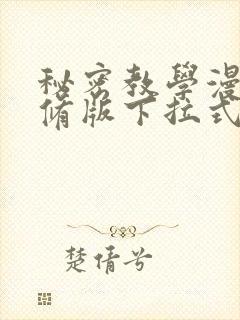 秘密教學漫
脩版下拉式
楚倩兮